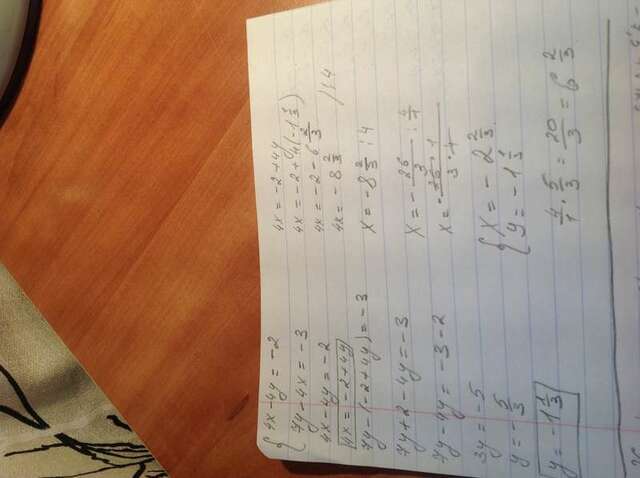 { 4x-4y = -2
7y-4x = -3
4x-4y = -2
4x = -2+4y
7y-(-2+4y) = -3
7y+2-4y = -3
7y-4y = -3-2
3y = -5
y = -5/3
y = -1 1/3
4x = -2+4y
4x = -2+4(-1 1/3)
4x = -2-6 2/3
4x = -8 2/3 /:4
x = -8 2/3 :4
x = -26/3 · 4/1
{ x = -2 2/3
y = -1 1/3
4/1 · 5/3 = 20/3 = 6 2/3